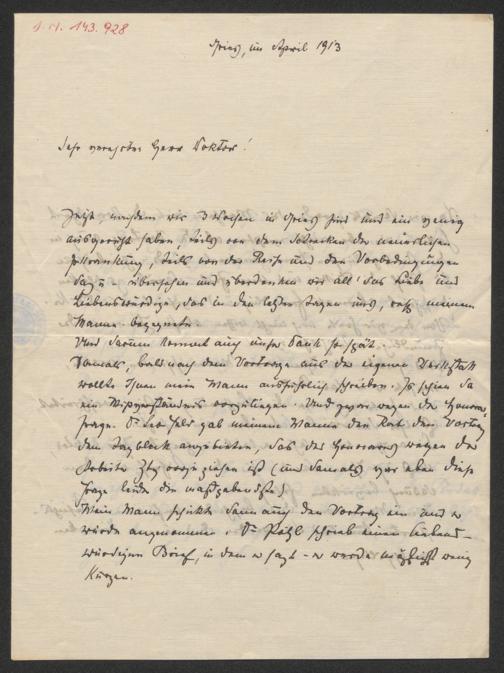 I. N. 143.928
Gries, im April 1913
Sehr verehrter Herr Doktor!
Jetzt nachdem wir 3 Wochen in Gries sind und ein wenig
ausgeruht haben, teils von dem Schrecken der neuerlichen
Erkrankung, teils von der Reise und den Vorbedingungen
dazu - übersehen und überdenken wir all' das Liebe und
Liebenswürdige, das in den letzten Tagen uns, resp. meinem
Manne begegnete.
Und darum kommt auch unser Dank so spät.
Damals, bald nach dem Vortrage aus der eigenen Werkstatt
wollte Ihnen mein Mann ausführlich schreiben. Es schien da
ein Mißverständnis vorzuliegen. Und zwar wegen der Honorar-
frage. Dr. gab meinem Manne den Rat den Vortrag
dem Tagblatt anzubieten, das des Honorares wegen der
Arbeiter Ztg vorzuziehen ist (und damals war eben diese
Frage leider die maßgebendste)
Mein Mann schickte dann auch den Vortrag ein und er
wurde angenommen. Dr. Pötzl schrieb einen liebens-
würdigen Brief, in dem er sagt - er werde möglichst wenig
kürzen.